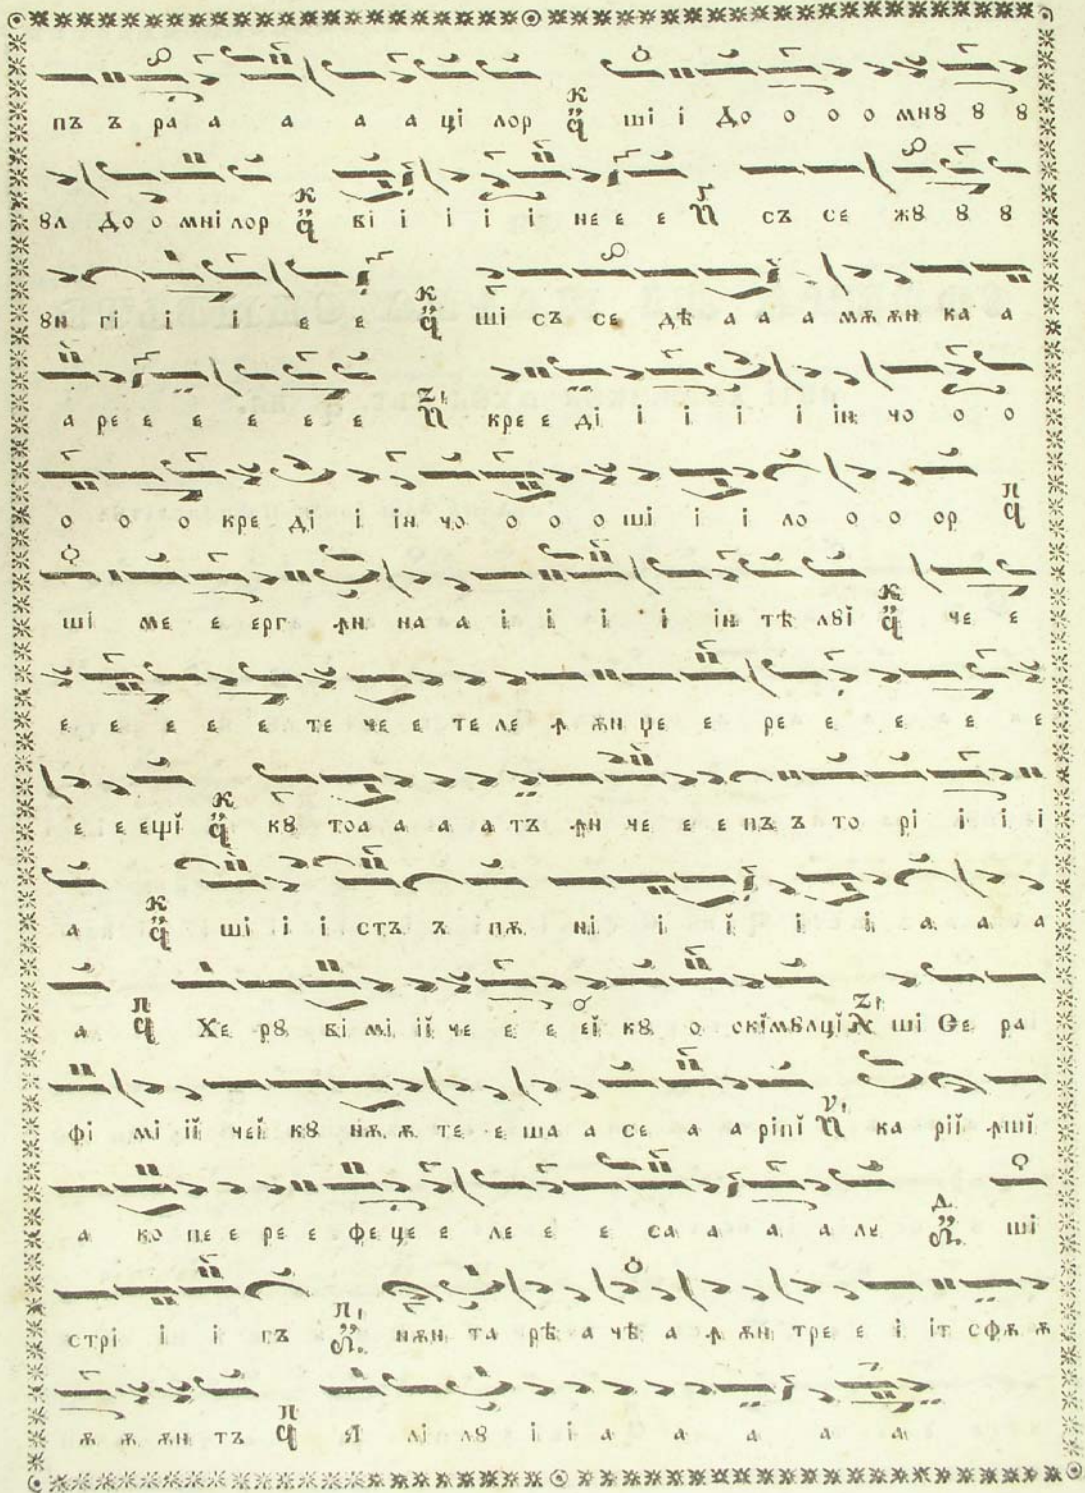 пъ ъ ра а а а а ці лор ші і До о о о мнꙋ ꙋ ꙋ
ꙋл До о мні лор ві і і і і не е е съ се жꙋ ꙋ ꙋ
ꙋн гі і і е е ші съ се дѣ а а а мѫ ѫн ка а
а ре е е е е е кре е ді і і і і ін чо о о
о о о кре ді і ін чо о о о ші і і ло о о ор
ші ме е ерг ꙟн на а і і і і ін тѣ лꙋї че е
е е е е е те че е те ле ꙟ ѫн це е ре е е е е
е е ещї кꙋ тоа а а а тъ ꙟн че е е пъ ъ то рі і і і
а ші і і стъ ъ пѫ ні і ї і і а а а
а Хе рꙋ ві мі ії че е е еї кꙋ о окїмꙋлцї ші Се ра
фі мі ії чеї кꙋ нѫ ѫ те е ша а се а а ріпї ка рії ꙟші
а ко пе е ре е фе це е ле е е са а а але ші
стрі і і гъ нѫн та рѣ а чѣ а ꙟ ѫн тре е і іт сфѫ ѫ
ѫ ѫ ѫн тъ Я лі лꙋ і і а а а а а